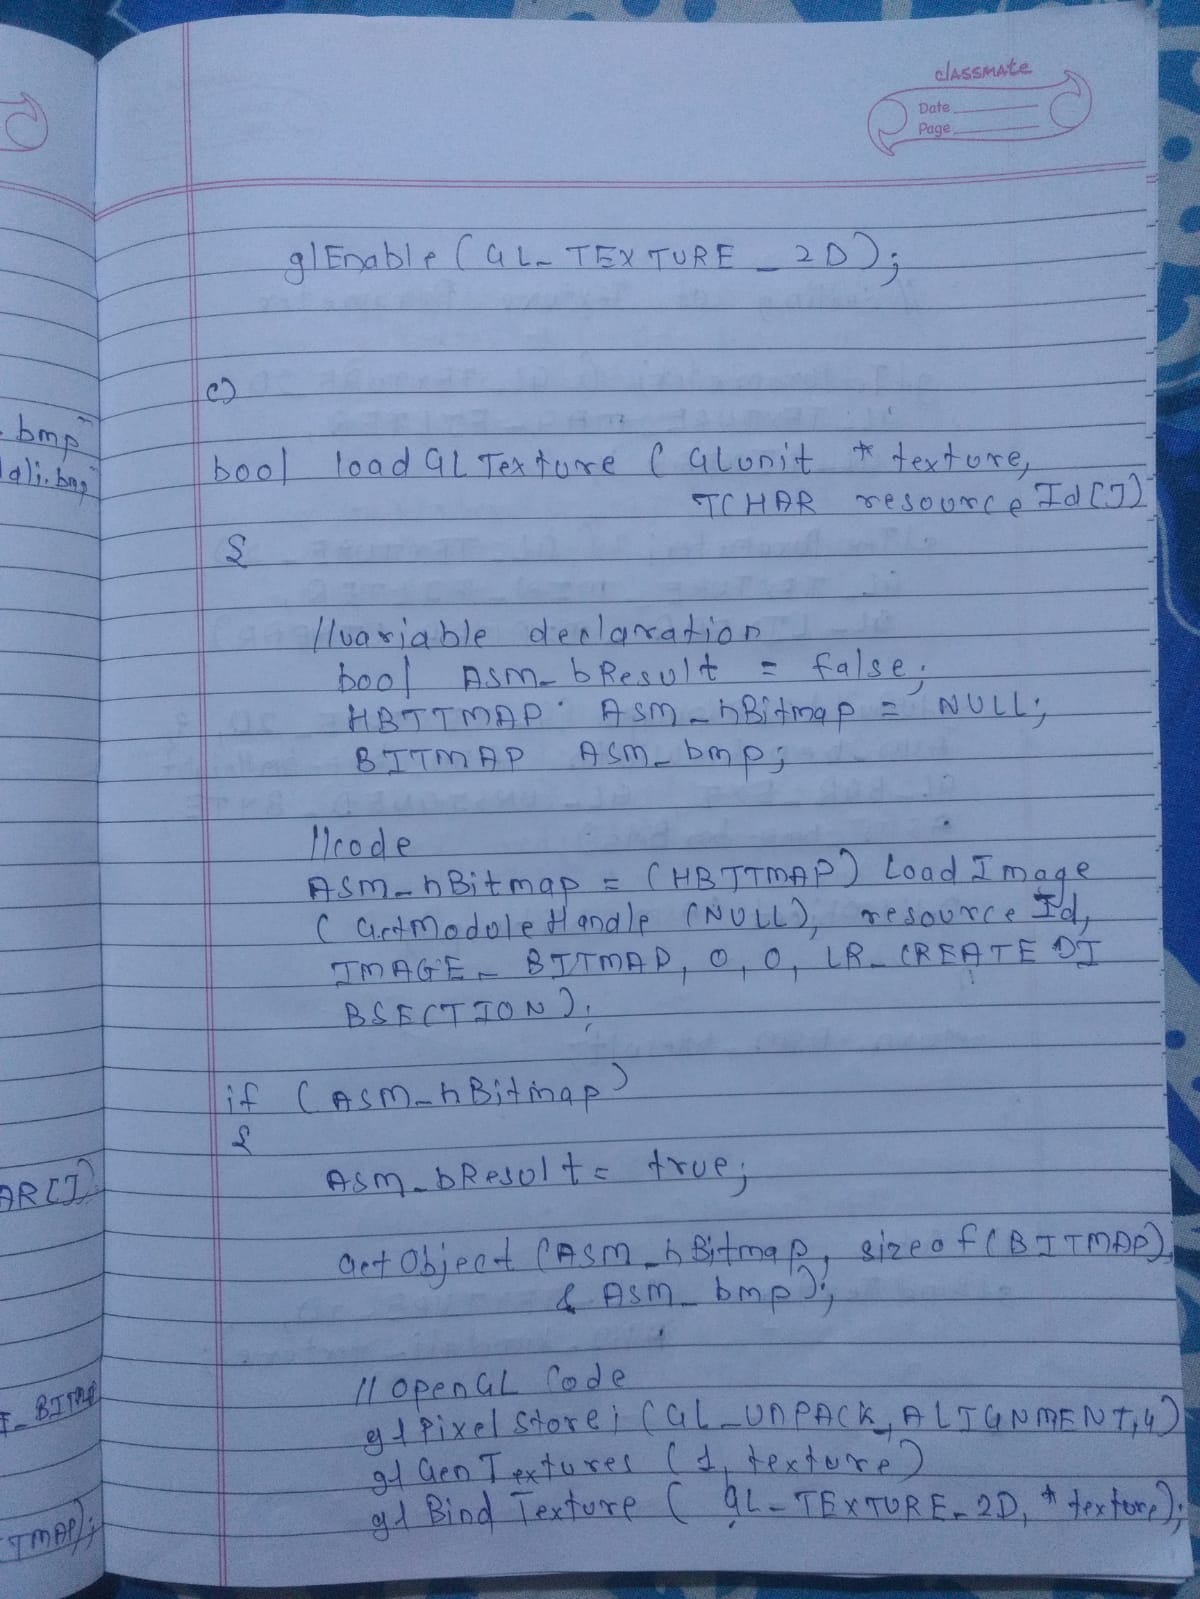 classmate
Date
Page
glEnable (GL_TEXTURE_2D);
c)
bmp"
ali.bmp"
bool loadGLTexture (GLunit * texture,
TCHAR resourceId[])
{
//variable declaration
bool ASM_bResult = false;
HBITMAP ASM_hBitmap = NULL;
BITMAP ASM_bmp;
//code
ASM_hBitmap = (HBITMAP) LoadImage
(GetModuleHandle (NULL), resourceId,
IMAGE_BITMAP, 0, 0, LR_CREATEDI
BSECTION);
if (ASM_hBitmap)
{
ASM_bResult = true;
AR[])
GetObject (ASM_hBitmap, sizeof(BITMAP),
& ASM_bmp);
//OpenGL Code
_BITMA
glPixelStorei (GL_UNPACK_ALIGNMENT,4)
glGenTextures (1, texture)
glBindTexture (GL_TEXTURE_2D, *texture);
TMAP);